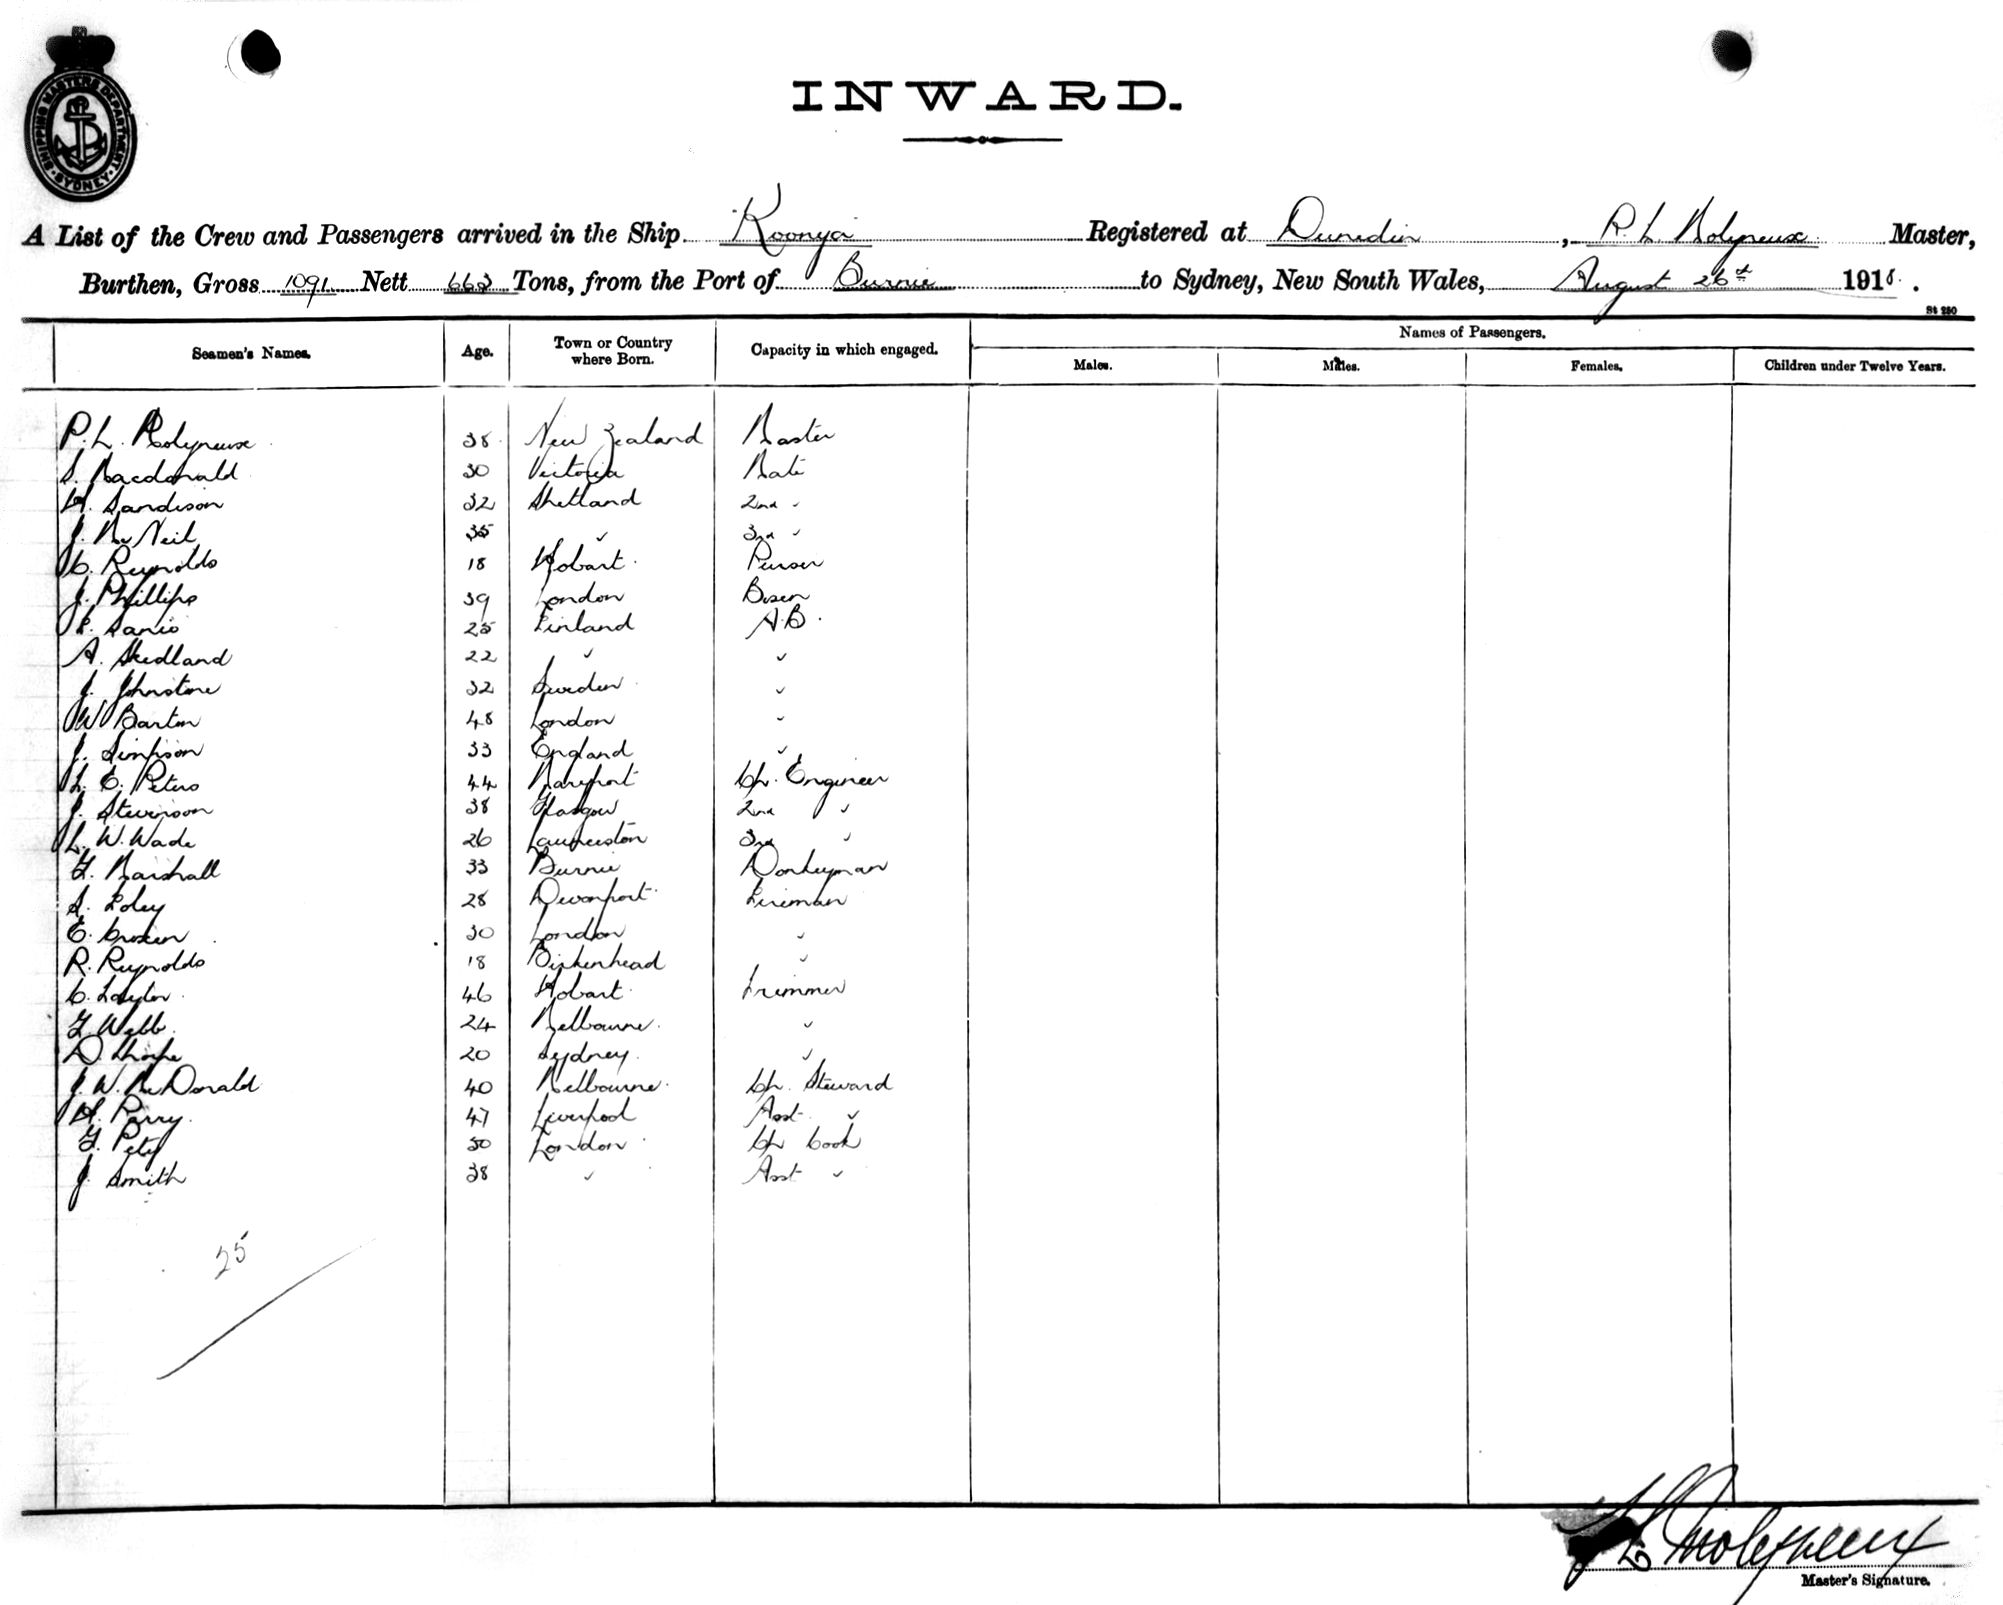 SHIPPING MASTERS DEPARTMENT
SYDNEY
INWARD.
A List of the Crew and Passengers arrived in the Ship Koonya Registered at Dunedin, P. L. Molyneux Master,
Burthen, Gross 1091 Nett 662 Tons, from the Port of Burnie to Sydney, New South Wales, August 26th 1918.
St 250
Seamen's Names. Age. Town or Country where Born. Capacity in which engaged. Names of Passengers.
Males. Males. Females. Children under Twelve Years.
P. L. Molyneux 38 New Zealand Master
S. Macdonald 30 Victoria Mate
H. Sandison 32 Shetland 2nd "
J. McNeil 35 " 3rd "
C. Reynolds 18 Hobart Purser
J. Phillips 39 London Bosun
Sanio 25 Finland A.B.
A. Skedland 22 " "
J. Johnstone 32 Sweden "
W Barton 48 London "
J. Simpson 33 England "
L. E. Peters 44 Maryport Ch. Engineer
J. Stevenson 38 Glasgow 2nd "
L. W. Wade 26 Launceston 3rd "
F. Marshall 33 Burnie Donkeyman
S. Foley 28 Devonport Fireman
E. 30 London "
R. Reynolds 18 Birkenhead "
C. Taylor 46 Hobart Trimmer
F. Webb 24 Melbourne "
D. Thorpe 20 Sydney "
J. W. McDonald 40 Melbourne Ch. Steward
H. Perry 47 Liverpool Asst "
F. Pety 50 London Ch Cook
J. Smith 38 " Asst "
25
P L Molyneux
Master's Signature.